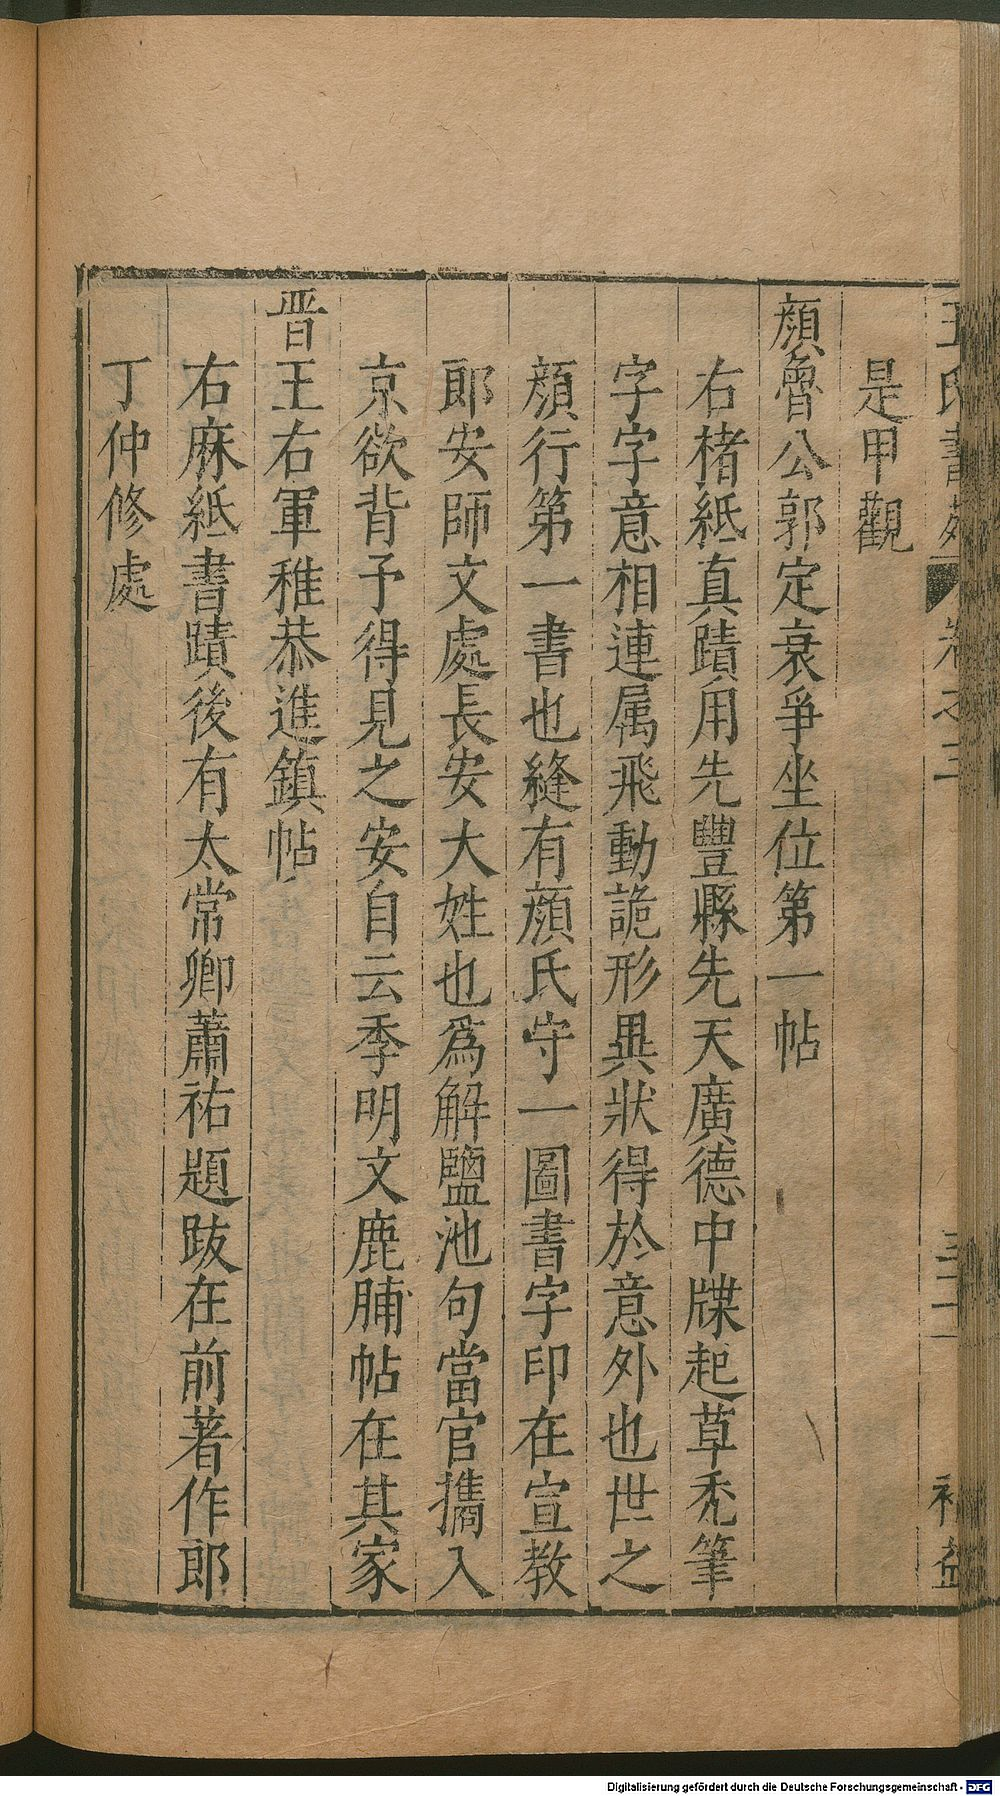 王氏書苑 卷之三 三十一 補益
是甲觀
顏魯公郭定襄爭坐位第一帖
右楮紙真蹟用先豐縣先天廣德中牒起草禿筆
字字意相連属飛動詭形異狀得於意外也世之
顏行第一書也縫有顏氏守一圖書字印在宣教
郎安師文處長安大姓也為解鹽池句當官攜入
京欲背予得見之安自云季明文鹿脯帖在其家
晋王右軍稚恭進鎮帖
右麻紙書蹟後有太常卿蕭祐題跋在前著作郎
丁仲修處
Digitalisierung gefördert durch die Deutsche Forschungsgemeinschaft - DFG